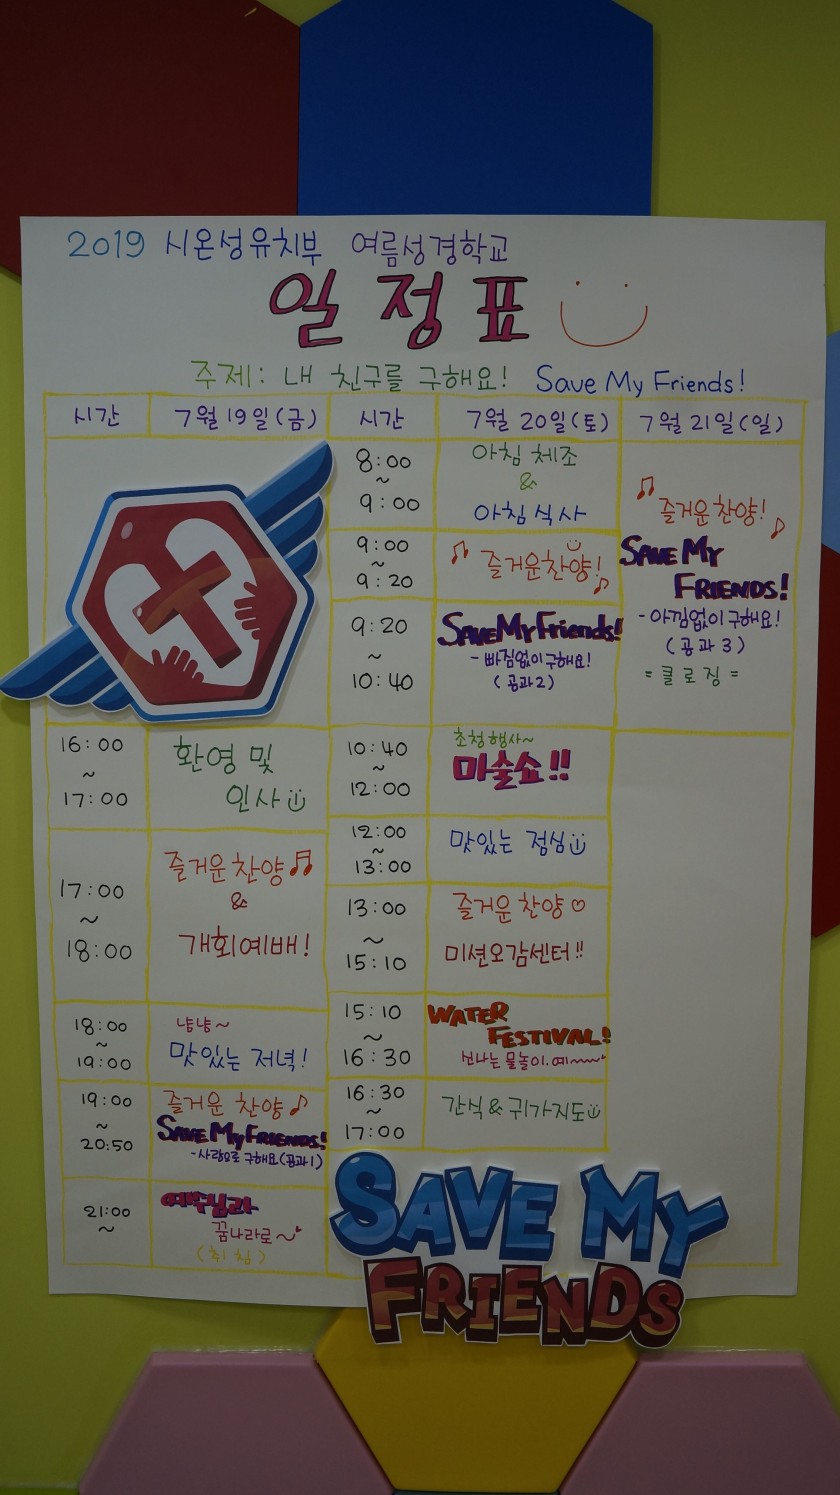 2019 시온성유치부 여름성경학교
일정표
주제: 내 친구를 구해요! Save My Friends!
시간 7월 19일(금) 시간 7월 20일(토) 7월 21일(일)
16:00
~
17:00
환영 및
인사
17:00
~
18:00
즐거운 찬양
&
개회예배!
18:00
~
19:00
냠냠~
맛있는 저녁!
19:00
~
20:50
즐거운 찬양
SAVE MY FRIENDS!
-사랑으로 구해요(공과1)
21:00
~
예수님과
꿈나라로~
(취침)
8:00
~
9:00
아침 체조
&
아침식사
9:00
~
9:20
즐거운찬양!
9:20
~
10:40
Save My Friends!
- 빠짐없이구해요!
(공과2)
10:40
~
12:00
초청행사~
마술쇼!!
12:00
~
13:00
맛있는 점심
13:00
~
15:10
즐거운 찬양
미션오감센터!!
15:10
~
16:30
WATER
FESTIVAL!
신나는 물놀이.예~~~
16:30
~
17:00
간식&귀가지도
즐거운찬양!
SAVE MY
FRIENDS!
-아낌없이구해요!
(공과3)
=클로징=
SAVE MY
FRIENDS